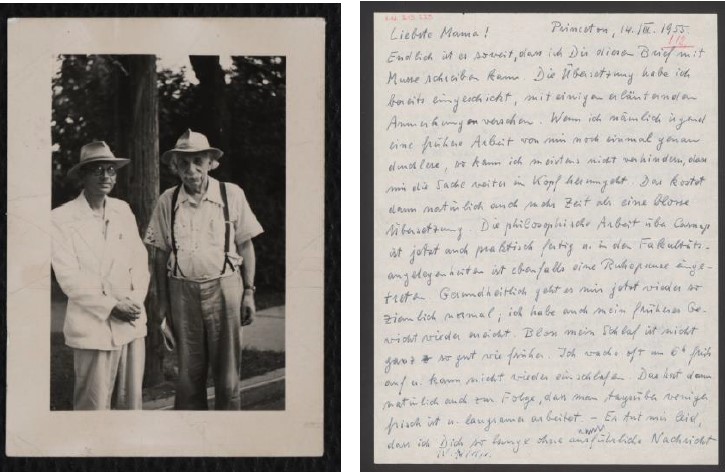 Liebste Mama! Princeton, 14./III. 1955.
Endlich ist es soweit, dass ich Dir diesen Brief mit
Musse schreiben kann. Die Übersetzung habe ich
bereits eingeschickt, mit einigen erläuternden
Anmerkungen versehen. Wenn ich nämlich irgend
eine frühere Arbeit von mir noch einmal genau
durchlese, so kann ich meistens nicht verhindern, dass
mir die Sache weiter im Kopf herumgeht. Das kostet
dann natürlich auch mehr Zeit als eine blosse
Übersetzung. Die philosophische Arbeit über Carnap
ist jetzt auch praktisch fertig u. in den Fakultäts-
angelegenheiten ist ebenfalls eine Ruhepause einge-
treten. Gesundheitlich geht es mir jetzt wieder so
ziemlich normal; ich habe auch mein früheres Ge-
wicht wieder erreicht. Bloss mein Schlaf ist nicht
ganz so gut wie früher. Ich wache oft um 6h früh
auf u. kann nicht wieder einschlafen. Das hat dann
natürlich auch zur Folge, dass man tagsüber weniger
frisch ist u. langsamer arbeitet. – Es tut mir leid,
dass ich Dich so lange ohne ausführliche Nachricht